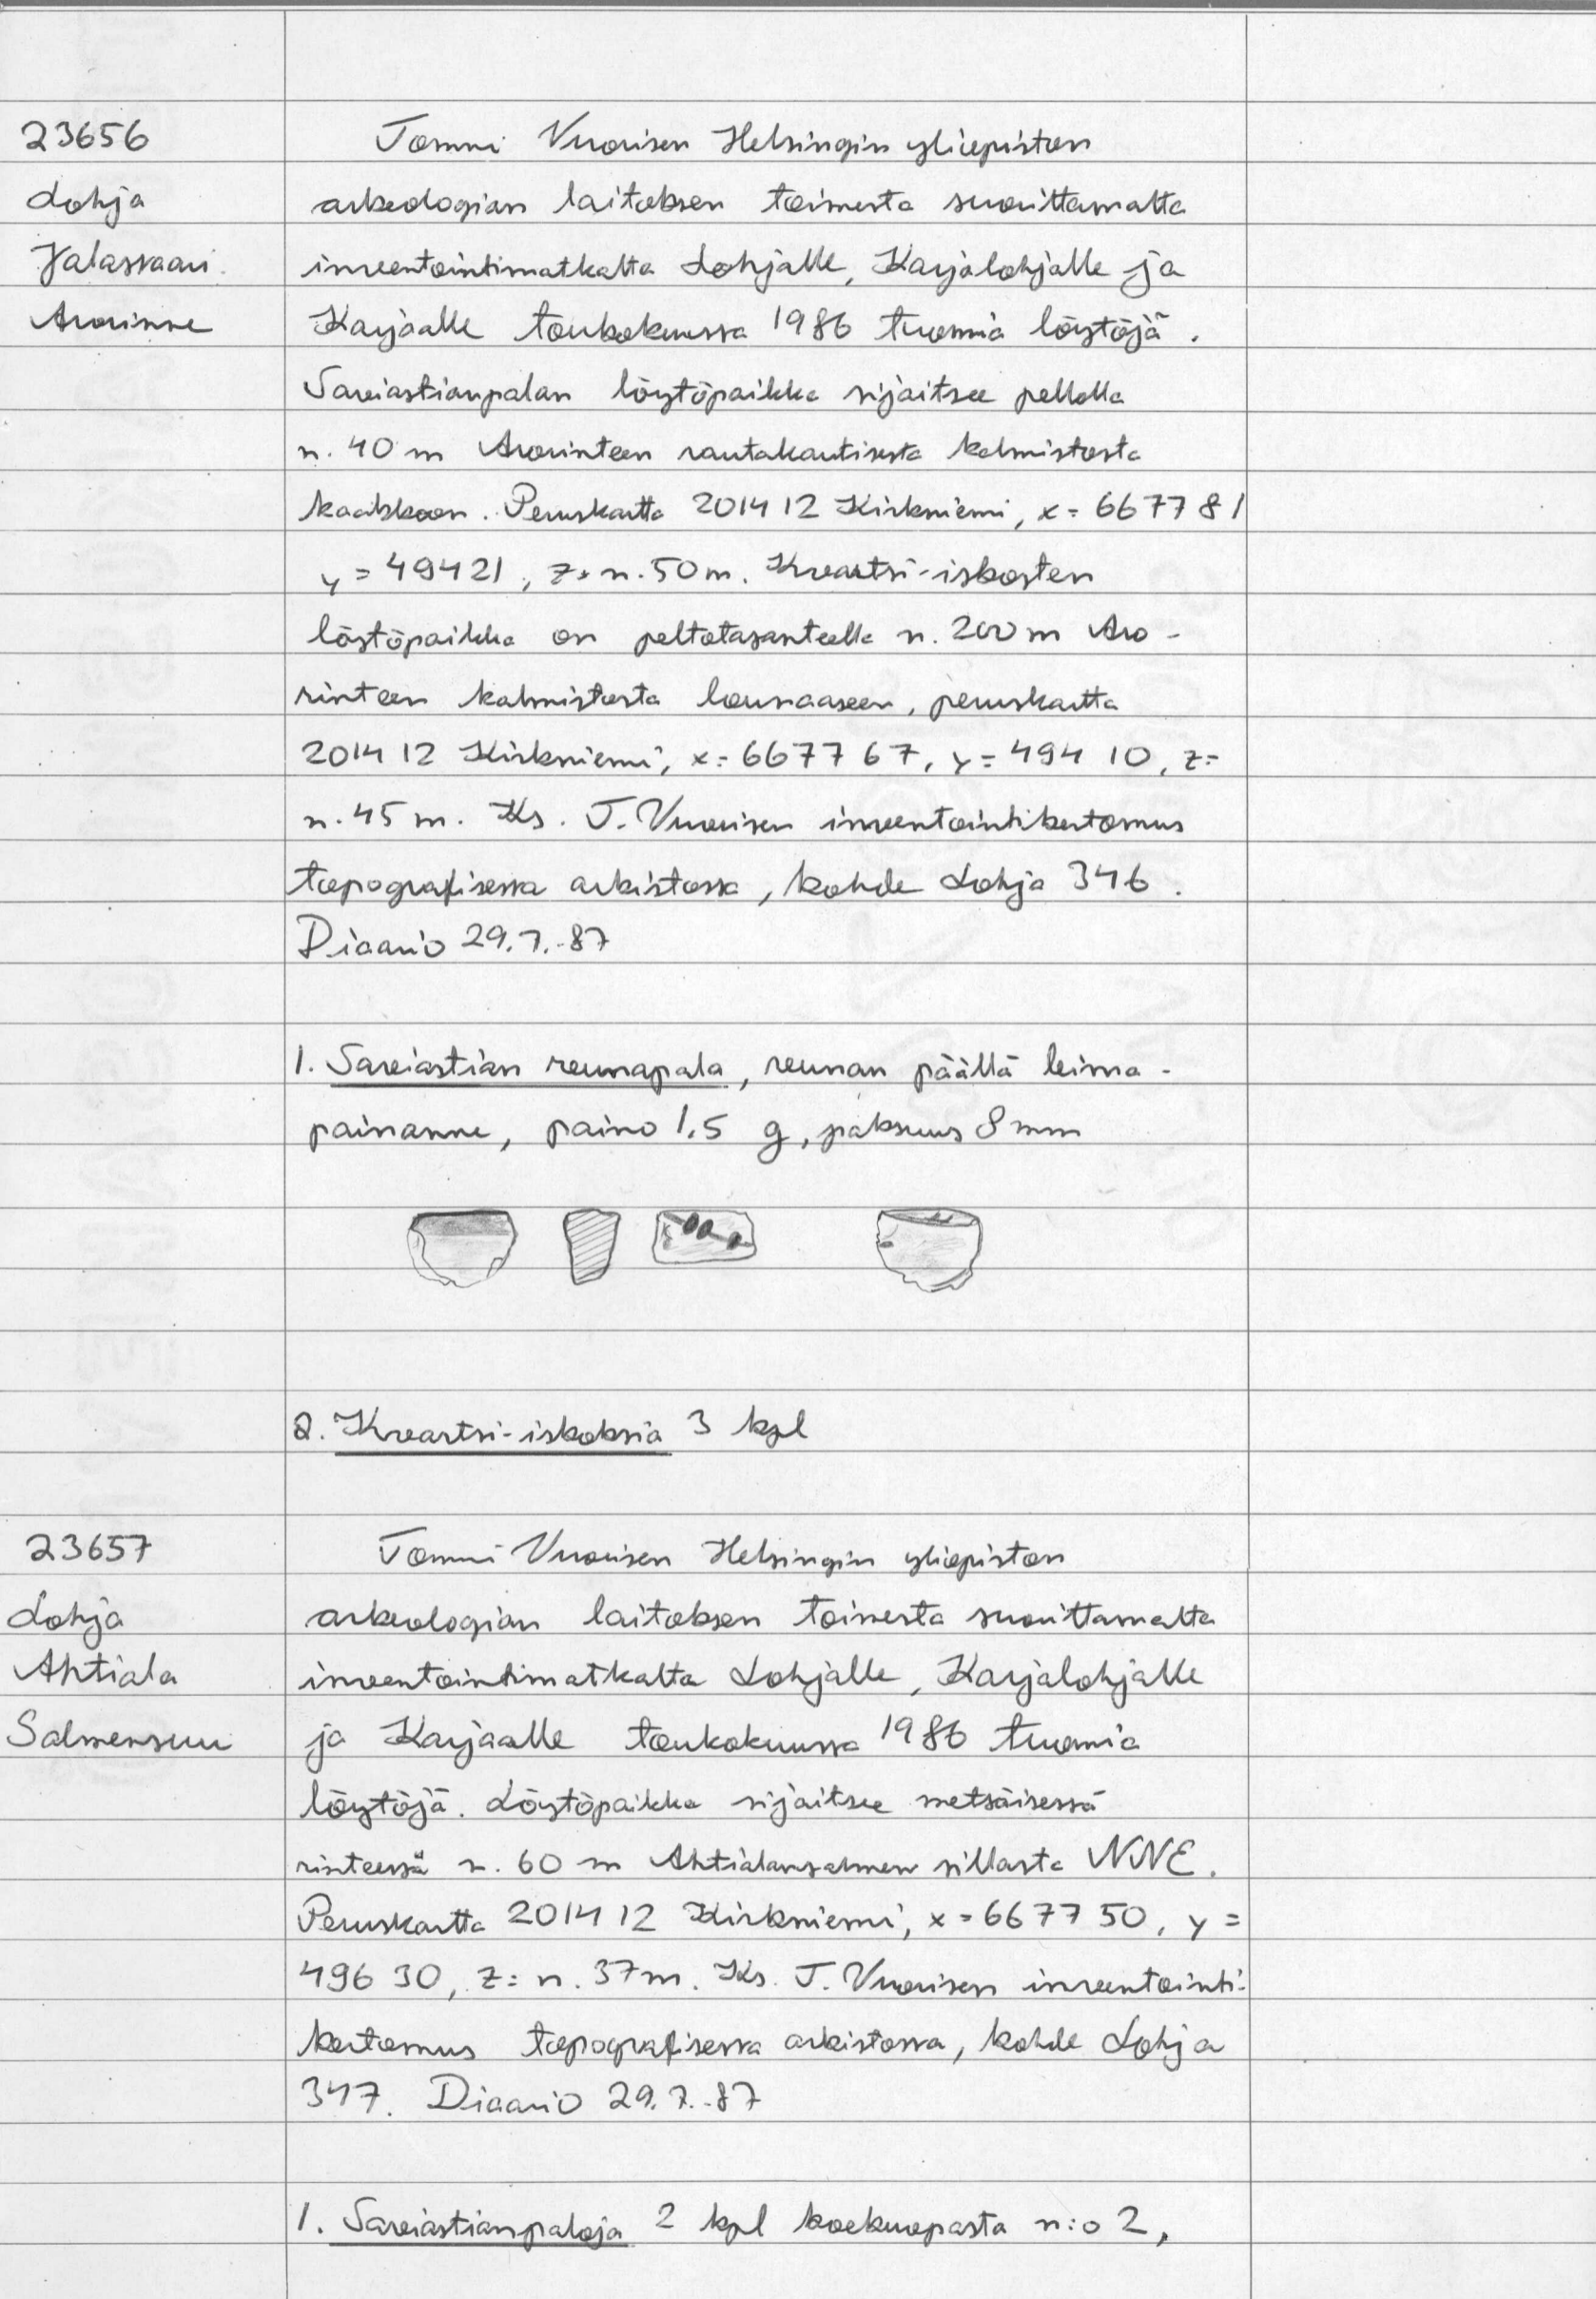 23656
Lohja
Jalassaari
Arorinne
Tommi Vuorisen Helsingin yliopiston
arkeologian laitoksen toimesta suorittamalta
inventointimatkalta Lohjalle, Karjalohjalle ja
Karjaalle toukokuussa 1986 tuomia löytöjä.
Saviastianpalan löytöpaikka sijaitsee pellolla
n. 40 m Arorinteen rautakautisesta kalmistosta
kaakkoon. Peruskartta 2014 12 Kirkniemi, x= 6677 81
y = 494 21, z= n. 50 m. Kvartsi-iskosten
löytöpaikka on peltotasanteella n. 200 m Aro-
rinteen kalmistosta lounaaseen, peruskartta
2014 12 Kirkniemi, x= 6677 67, y= 494 10, z=
n. 45 m. Ks. T. Vuorisen inventointikertomus
topografisessa arkistossa, kohde Lohja 346.
Diaario 29.7.-87
1. Saviastian reunapala, reunan päällä leima-
painanne, paino 1.5 g, paksuus 8 mm
2. Kvartsi-iskoksia 3 kpl
23657
Lohja
Ahtiala
Salmensuu
Tommi Vuorisen Helsingin yliopiston
arkeologian laitoksen toimesta suorittamalta
inventointimatkalta Lohjalle, Karjalohjalle
ja Karjaalle toukokuussa 1986 tuomia
löytöjä. Löytöpaikka sijaitsee metsäisessä
rinteessä n. 60 m Ahtialansalmen sillasta NNE.
Peruskartta 2014 12 Kirkniemi, x = 6677 50, y =
496 30, z= n. 37 m. Ks. T. Vuorisen inventointi-
kertomus topografisessa arkistossa, kohde Lohja
347. Diaario 29.7.-87
1. Saviastianpaloja 2 kpl koekuopasta n:o 2,